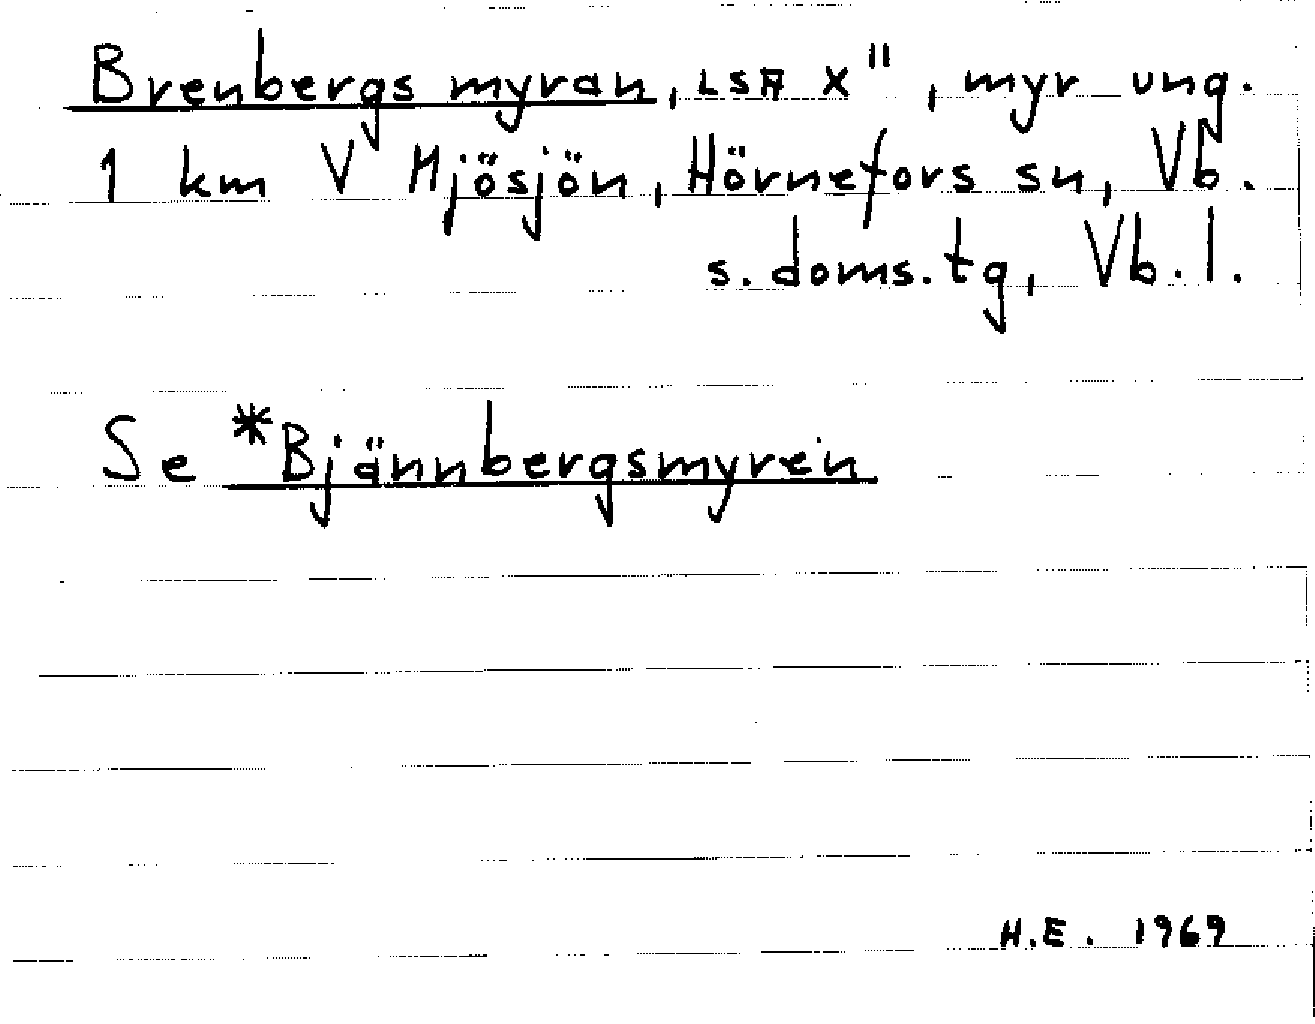 Brenbergs myran, LSA X", myr ung.
1 km V Mjösjön, Hörnefors sn, Vb.
s. doms. tg, Vb. l.
Se *Bjännbergsmyren
H.E. 1969